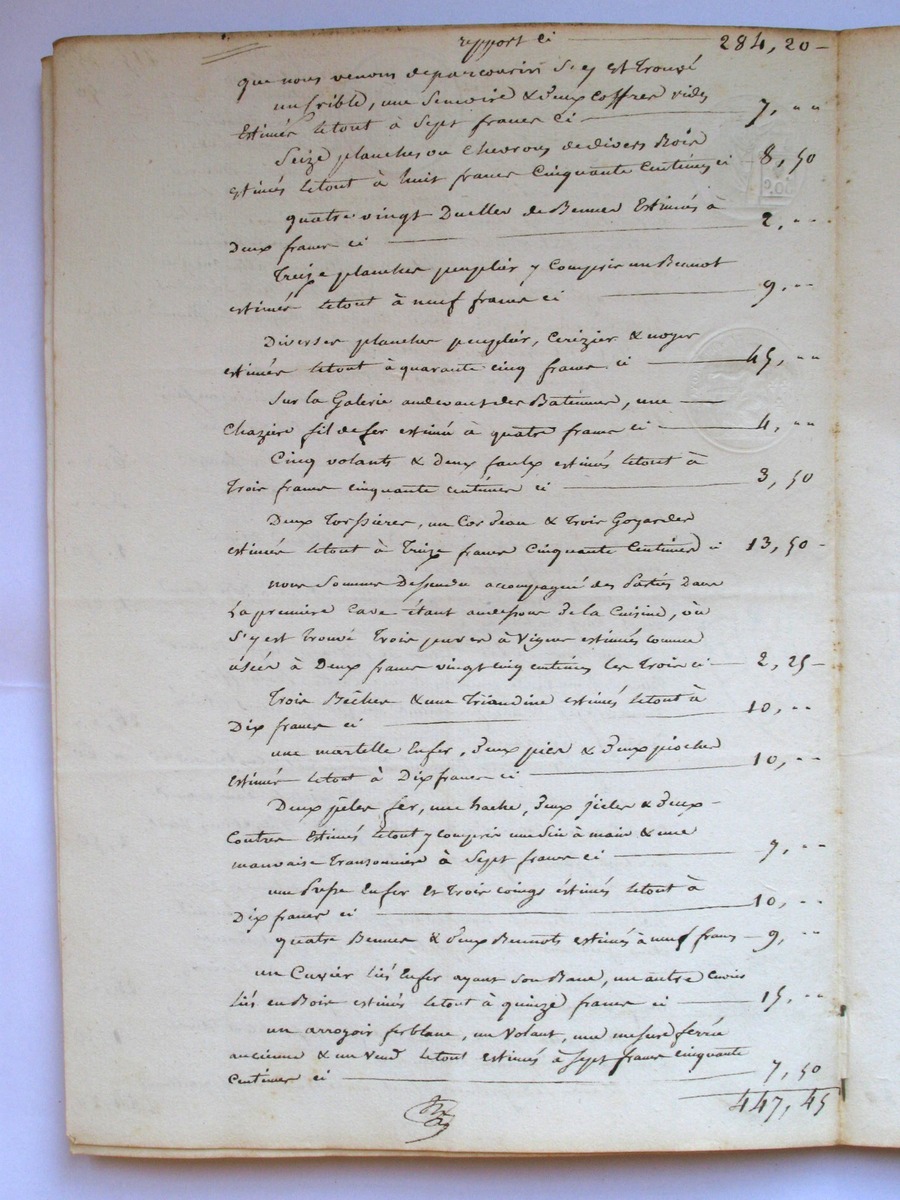 report ci 284, 20 -
que nous venons de parcourir S'y est trouvé
un crible, une Semoire & deux coffres vides
Estimés le tout à Sept francs ci 7, " "
Seize planches ou Chevrons de divers Bois
estimés le tout à huit francs Cinquante Centimes ci 8, 50
quatre vingt Duelles de Bennes Estimés à
Deux francs ci 2, " "
Treize planches peuplier y Compris un Bennot
estimés le tout à neuf francs ci 9, " "
Diverses planches peuplier, Cerizier & noyer
estimés le tout à quarante cinq francs ci 45, " "
Sur la Galerie au devant des Batimens, une
Chazière fil de fer estimé à quatre francs ci 4, " "
Cinq volants & deux faulx estimés le tout à
Trois francs cinquante centimes ci 3, 50
Deux Torpières, un Cordeau & trois Goyardes
estimés le tout à Treize francs Cinquante Centimes ci 13, 50 -
nous Sommes Dessendu accompagné des Parties dans
La première Cave étant au dessous de la Cuisine, où
S'y est trouvé Trois à Vigne estimés comme
usées à Deux francs vingt cinq centimes les Trois ci 2, 25 -
Trois Bêches & une Triandine estimés le tout à
Dix francs ci 10, " "
une martelle En fer, deux pics & deux pioches
Estimés le tout à Dix francs ci 10, " "
Deux pèles fer, une hache, deux & deux
Contres Estimés le tout y compris une Sie à main & une
mauvaise Transonnière à Sept francs ci 7, " "
une Presse En fer Et Trois coings éstimés le tout à
Dix francs ci 10, " "
quatre Bennes & deux Bennots estimés à neuf francs 9, " "
un Cuvier liés En fer ayant Son Banc, un autre Cuvier
liés en Bois estimés le tout à quinze francs ci 15, " "
un arrosoir ferblanc, un Volant, une mesure ferrée
ancienne & un le tout estimés à Sept francs cinquante
Centimes ci 7, 50
447, 45